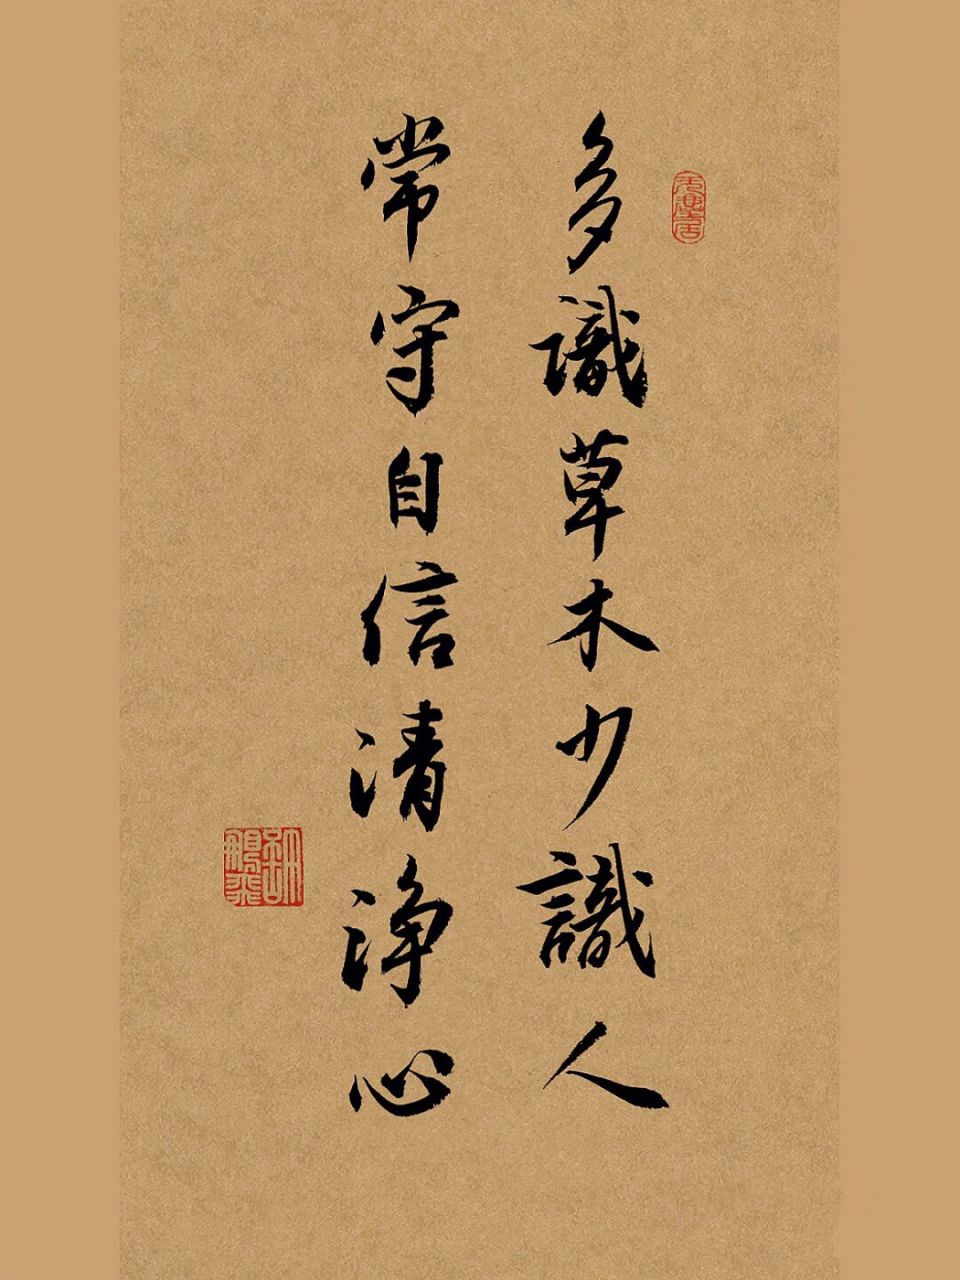 多識草木少識人
常守自信清浄心